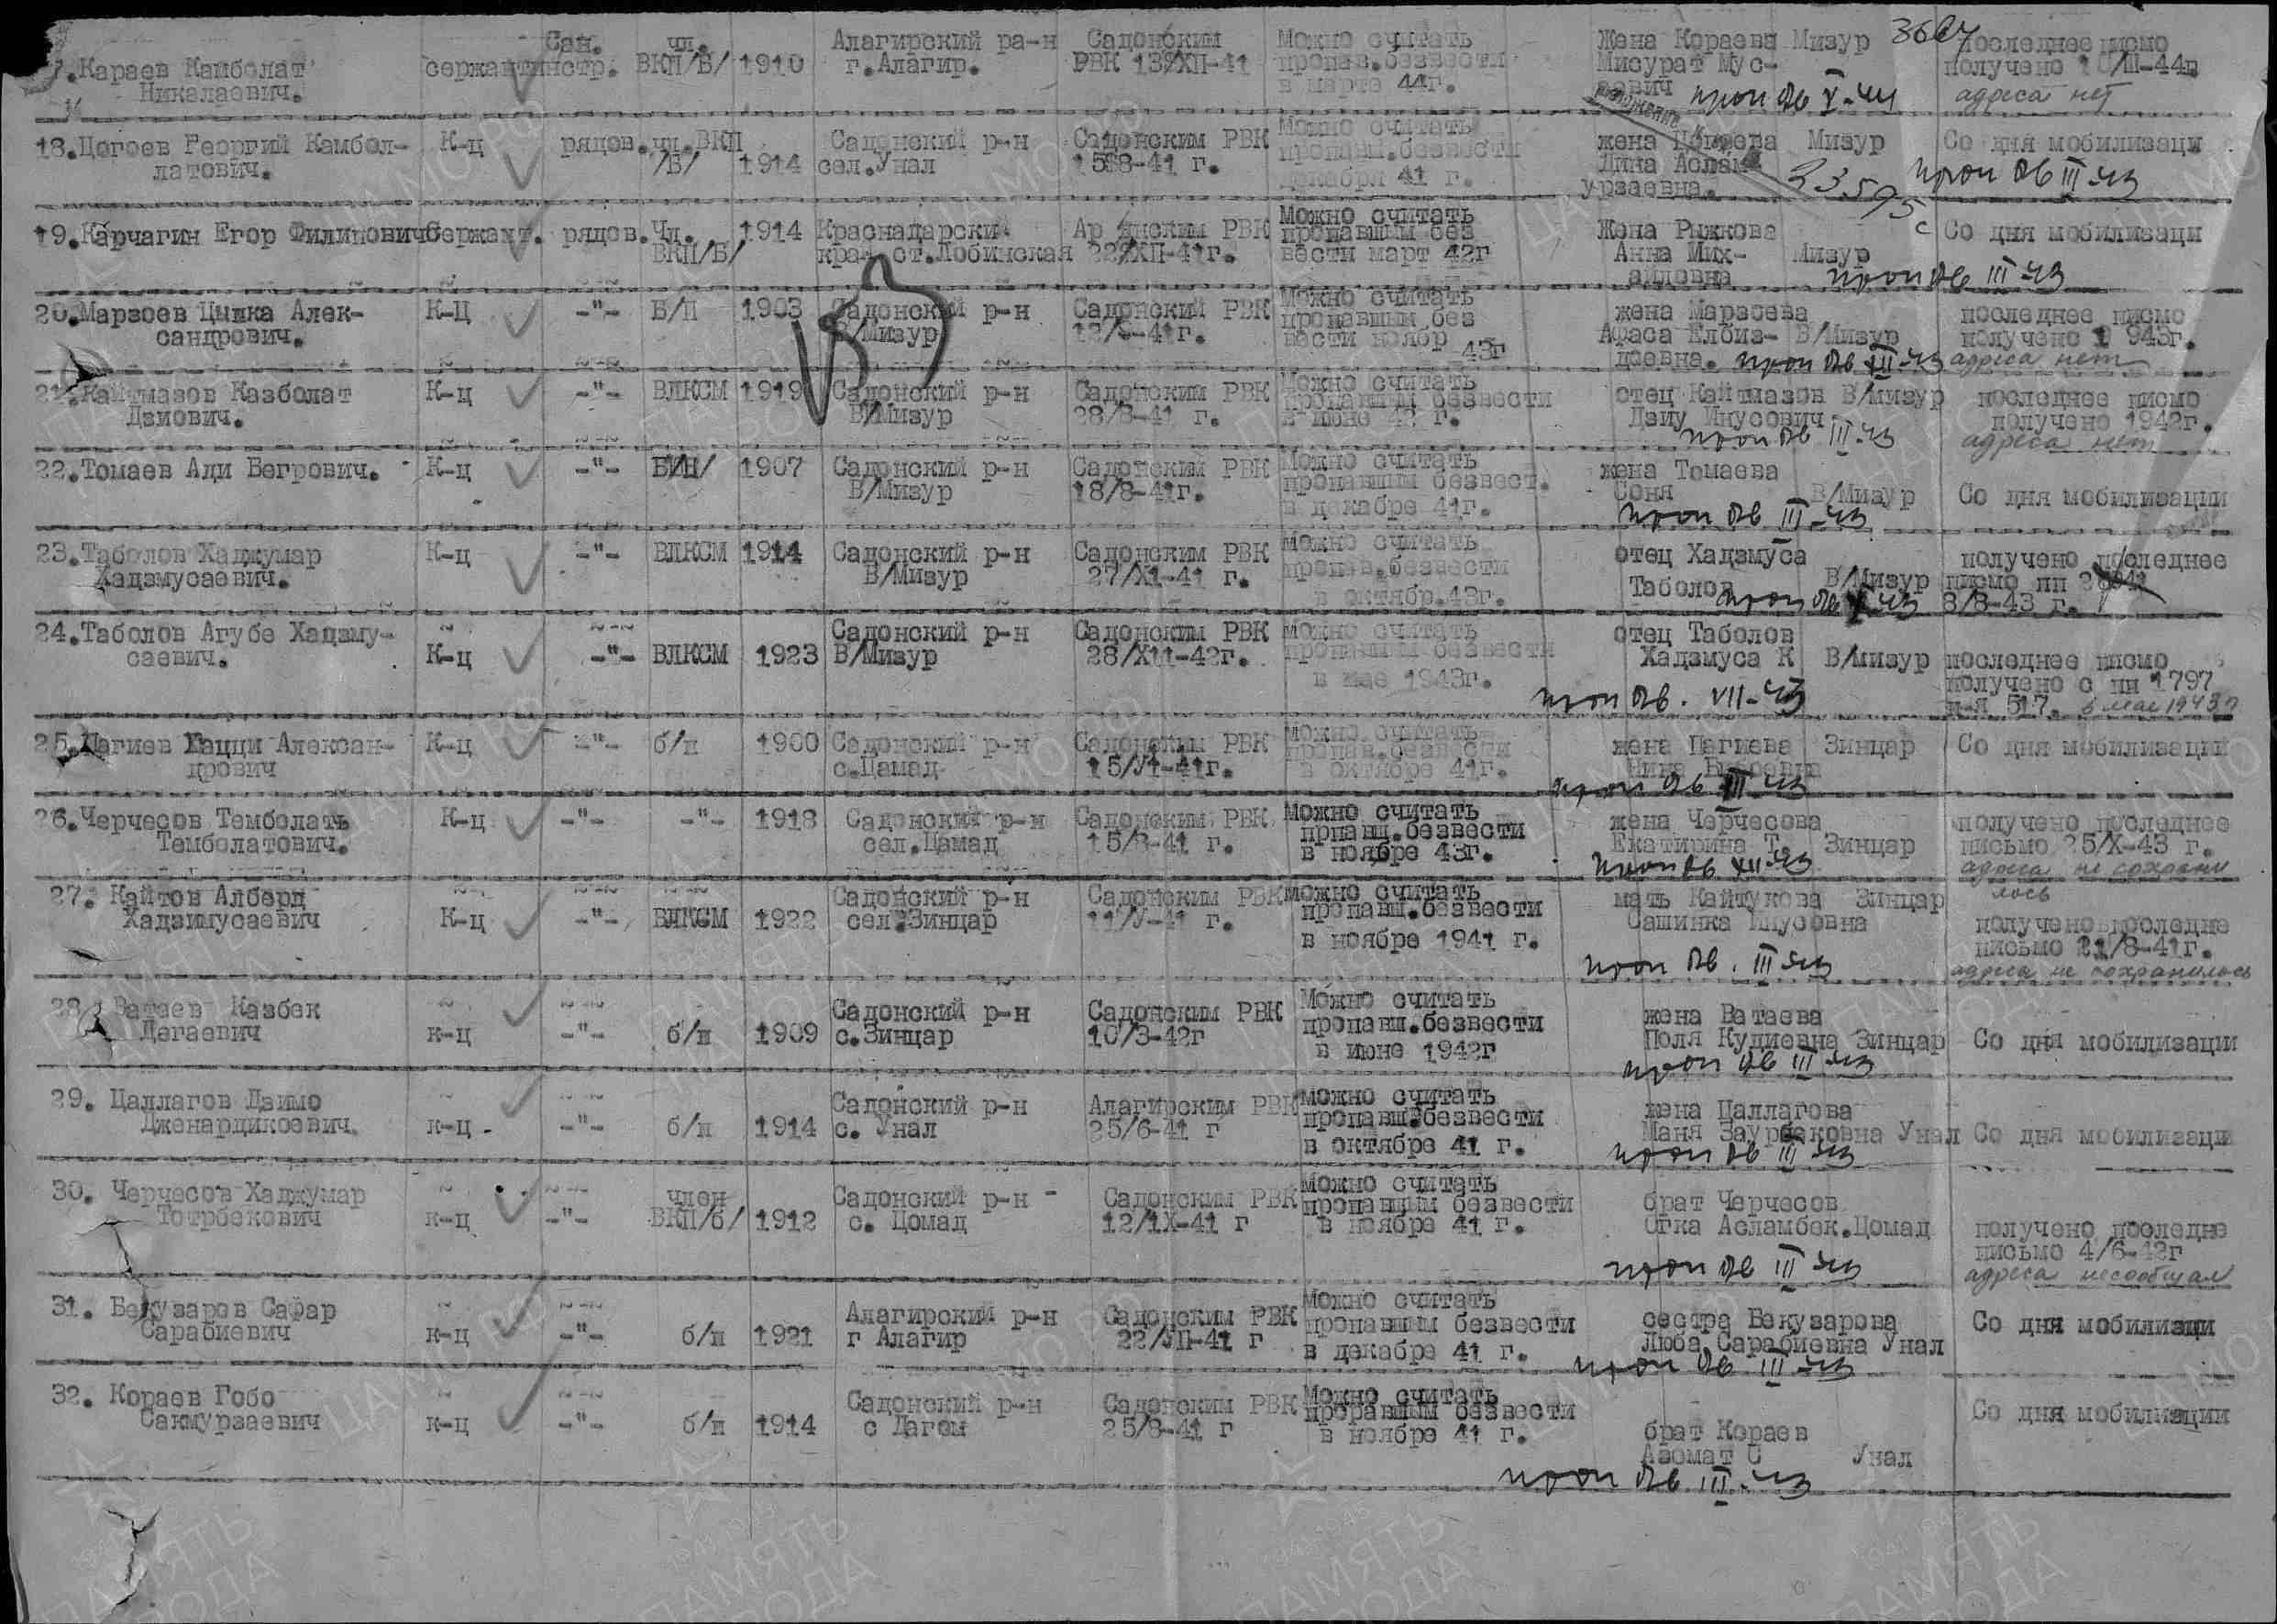 Караев Камболат Николаевич. сержант Сан. инстр. чл. ВКП/Б/ 1910 Алагирский ра-н г.Алагир. Садонским РВК Можно считать пропав.безвести в марте 44г. Жена Кораева Мисурат Мус- Мизур последнее писмо получено /III-44г адреса нет
18.Цогоев Георгий Камбол-латович. К-ц рядов. чл.ВКП /Б/ 1914 Садонский р-н сел.Унал Садонским РВК Можно считать пропавш.безвести декабря 41 г. жена Дика урзаевна. Мизур Со дня мобилизаци
19.Карчагин Егор Филипович Сержант. рядов. Чл. ВКП/Б/ 1914 Краснадарски край ст.Лобинская РВК Можно считать пропавшым без вести март 42г Жена Рыжкова Анна Мих- айловна Мизур Со дня мобилизаци
20.Марзоев Цыпка Алек-сандрович. К-Ц -"- Б/П 1903 Садонский р-н В/Мизур Садонский РВК Можно считать пропавшым без вести ноябр 43г жена Марзоева Афаса Елбиз- доевна. В/Мизур последнее писмо получено 1943г. адреса нет
21.Кайтмазов Казболат Дзиович. К-ц -"- ВЛКСМ 1919 Садонский р-н В/Мизур Садонским РВК 28/8-41 г. Можно считать пропавшым безвести в июне 42 г. отец Кайтмазов Дзиу Инусович В/мизур последнее писмо получено 1942г. адреса нет
22.Томаев Ади Бегрович. К-ц -"- 1907 Садонский р-н В/Мизур Садонским РВК 18/8-41г. Можно считать пропавшым безвест. в декабре 41г. жена Томаева Соня В/Мизур Со дня мобилизации
23.Таболов Хаджумар Хадзмусаевич. К-ц -"- ВЛКСМ 1914 Садонский р-н В/Мизур Садонским РВК 27/XI-41 г. Можно считать пропав.безвести в октябр.43г. отец Хадзмуса Таболов В/Мизур получено последнее писмо пп 8/8-43 г.
24.Таболов Агубе Хадзму-саевич. К-ц -"- ВЛКСМ 1923 Садонский р-н В/Мизур Садонским РВК 28/XII-42г. можно считать пропавшым безвести в мае 1943г. отец Таболов Хадзмуса К В/мизур последнее писмо получено с пп 1797 п-я 517. в мае 1943г
25.Цагиев Гацци Алексан-дрович К-ц -"- б/п 1900 Садонский р-н с.Цамад Садонским РВК можно считать пропав.безвести в октябре 41г. жена Цагиева Нина Зинцар Со дня мобилизаций
26.Черчесов Темболать Темболатович. К-ц -"- -"- 1918 Садонский р-н сел.Цамад Садонским РВК 15/8-41 г. можно считать прпавш.безвести в ноябре 43г. жена Черчесова Екатирина Т. Зинцар получено последнее письмо 25/X-43 г. адреса не сохрани лось
27. Кайтов Алберд Хадзимусаевич К-ц -"- ВЛКСМ 1922 Садонский р-н сел.Зинцар Садонским РВК 11/V-41 г. можно считать пропавш.безвести в ноябре 1941 г. мать Кайтукова Сашинка Инусовна Зинцар получено последне письмо 21/8-41г. адреса не сохранилось
28. Ватаев Казбек Дегаевич к-ц -"- б/п 1909 Садонский р-н с.Зинцар Садонским РВК 10/3-42г Можно считать пропавш.безвести в июне 1942г жена Ватаева Поля Кудиевна Зинцар Со дня мобилизации
29. Цаллагов Дзимо Дженардикоевич. к-ц -"- б/п 1914 Садонский р-н с. Унал Алагирским РВК 25/6-41 г можно считать пропавш.безвести в октябре 41 г. жена Цаллагова Маня Заурбековна Унал Со дня мобилизаци
30. Черчесов Хаджумар Тотрбекович к-ц -"- член ВКП/б/ 1912 Садонский р-н с. Цомад Садонским РВК 12/IX-41 г можно считать пропавщым безвести в ноябре 41 г. брат Черчесов Огка Асламбек.Цомад получено последне письмо 4/6-42г адреса несообщал
31. Бекузаров Сафар Сарабиевич к-ц -"- б/п 1921 Алагирский р-н г Алагир Садонским РВК Можно считать пропавшым безвести в декабре 41 г. сестра Бекузарова Люба Сарабиевна Унал Со дня мобилизци
32. Кораев Гобо Сакмурзаевич к-ц -"- б/п 1914 Садонский р-н с Дагом Садонским РВК 25/8-41 г Можно считать проравшым безвести в ноябре 41 г. брат Кораев Азомат С Унал Со дня мобилизации